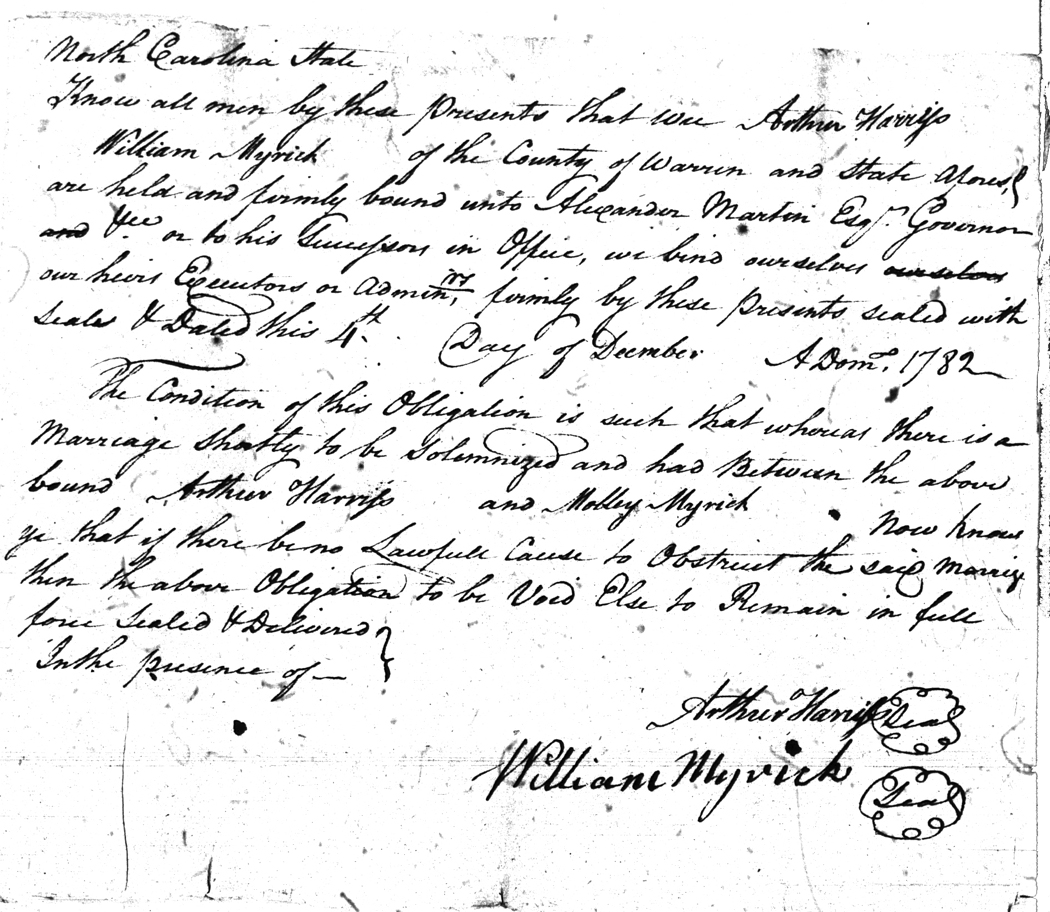 North Carolina State
Know all men by these presents that wee Arthur Harriss
William Myrick of the County of Warren and State afores,d
are held and firmly bound unto Alexander Martin Esqr. Governor
and &ce or to his Successors in Office, we bind ourselves ourselves
our heirs Executors or Admin,rs firmly by these presents sealed with
seals & Dated this 4th. Day of December A Domo. 1782
The Condition of this Obligation is such that whereas there is a
Marriage Shortly to be Solemnized and had Between the above
bound Arthur Harriss and Molley Myrick Now know
ye that if there be no Lawfull Cause to Obstruct the said Marrige
then the above Obligation to be Void Else to Remain in full
force Sealed & Delivered
In the presence of
Arthur Harriss Seal
William Myrick Seal